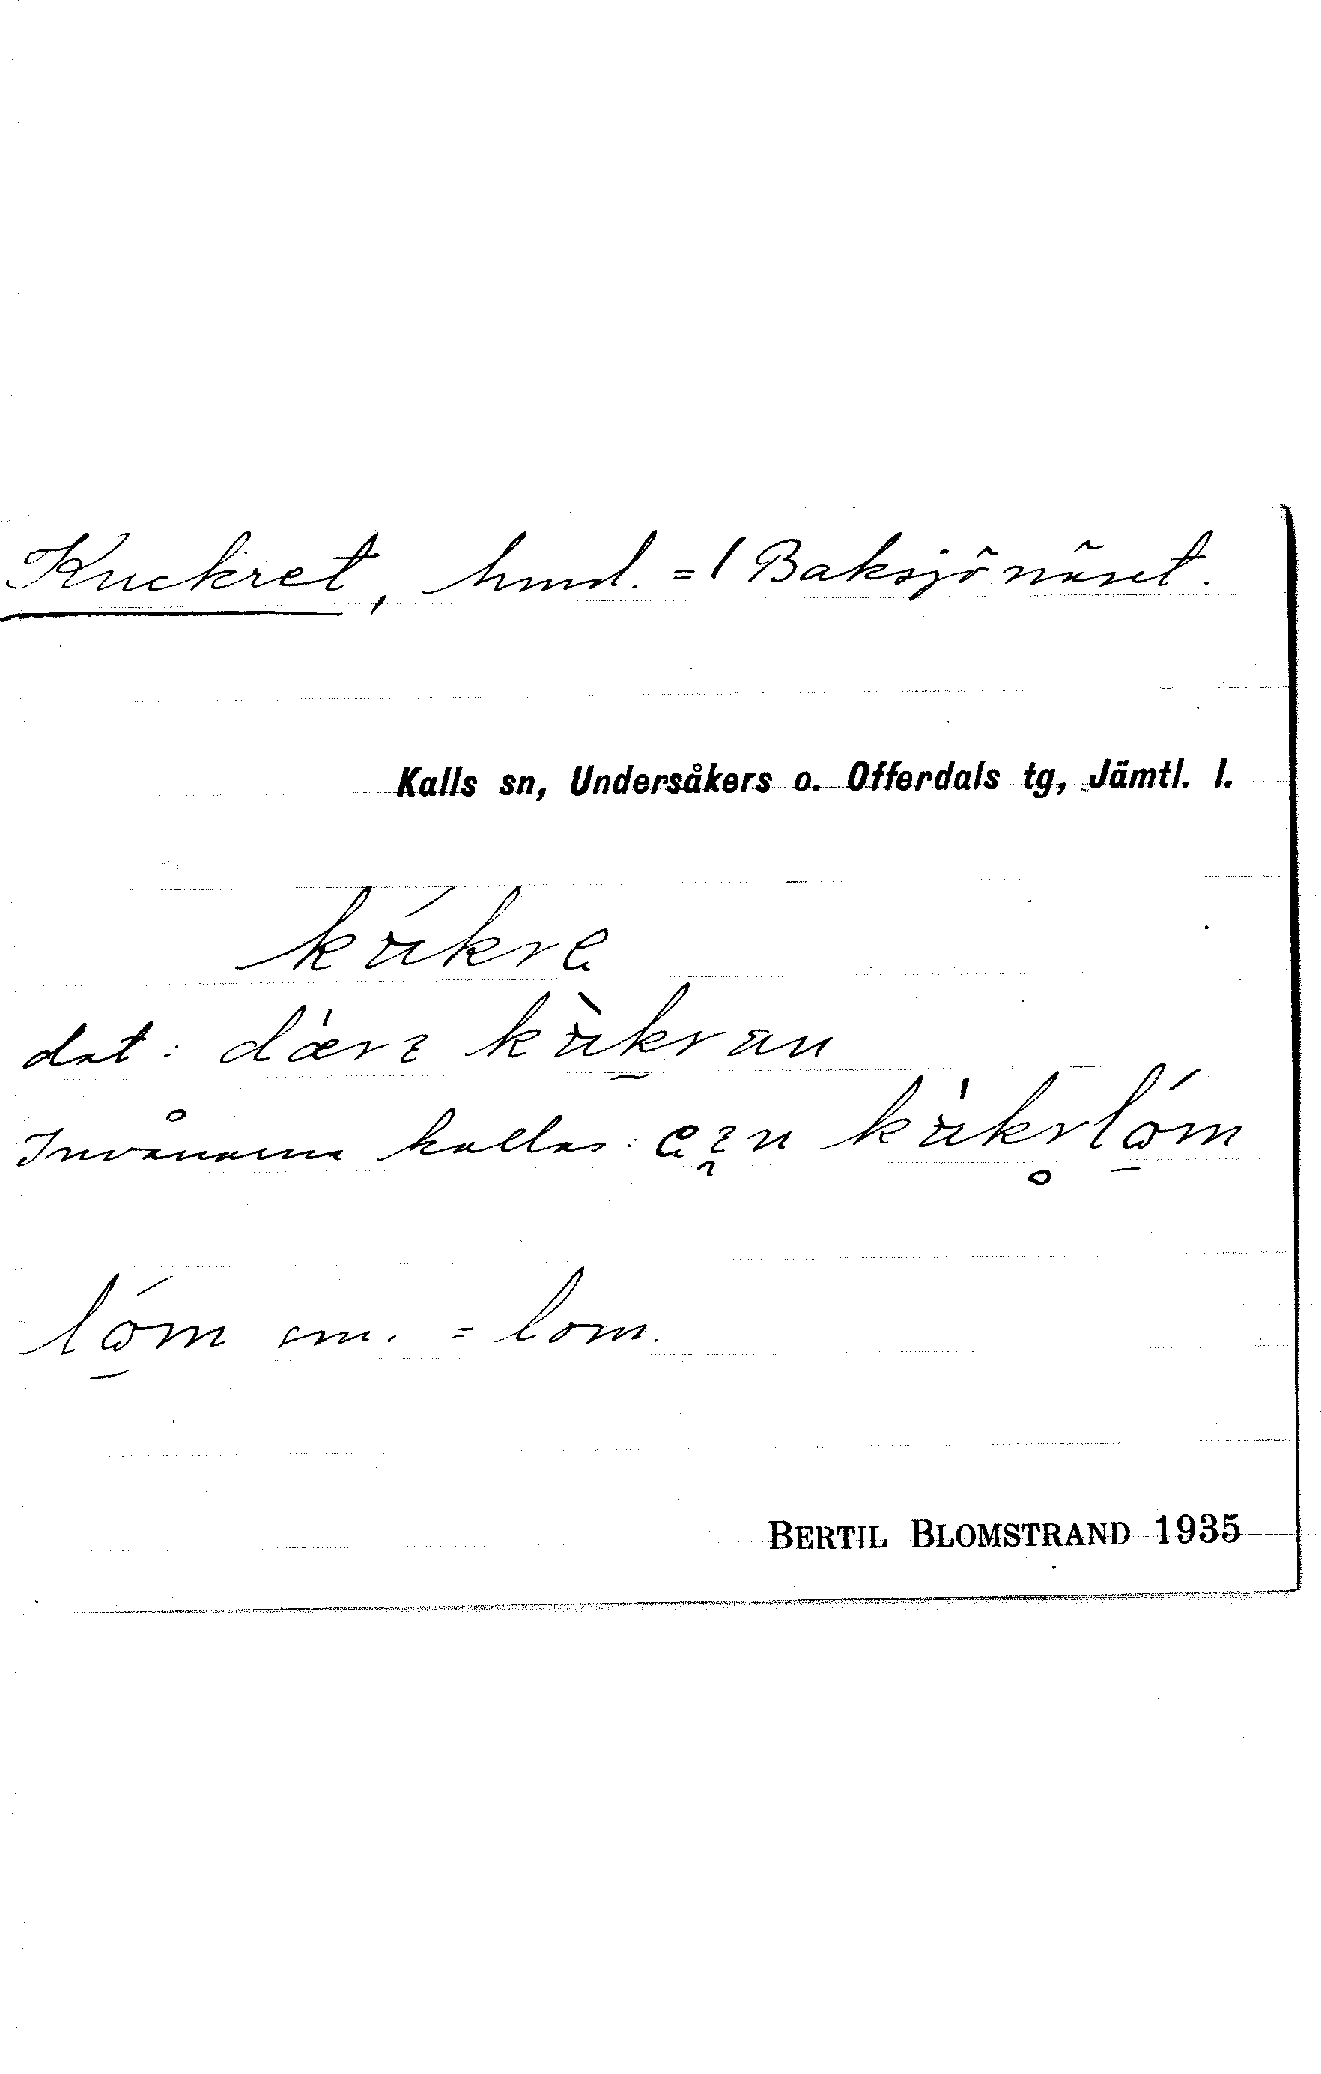 Kuckret, hmd. = / Baksjönäset.
Kalls sn, Undersåkers o. Offerdals tg, Jämtl. l.
kúkre
dat: dær kùkran
Invånarna kallas: kùkrlóm
lóm = lom.
BERTIL BLOMSTRAND 1935